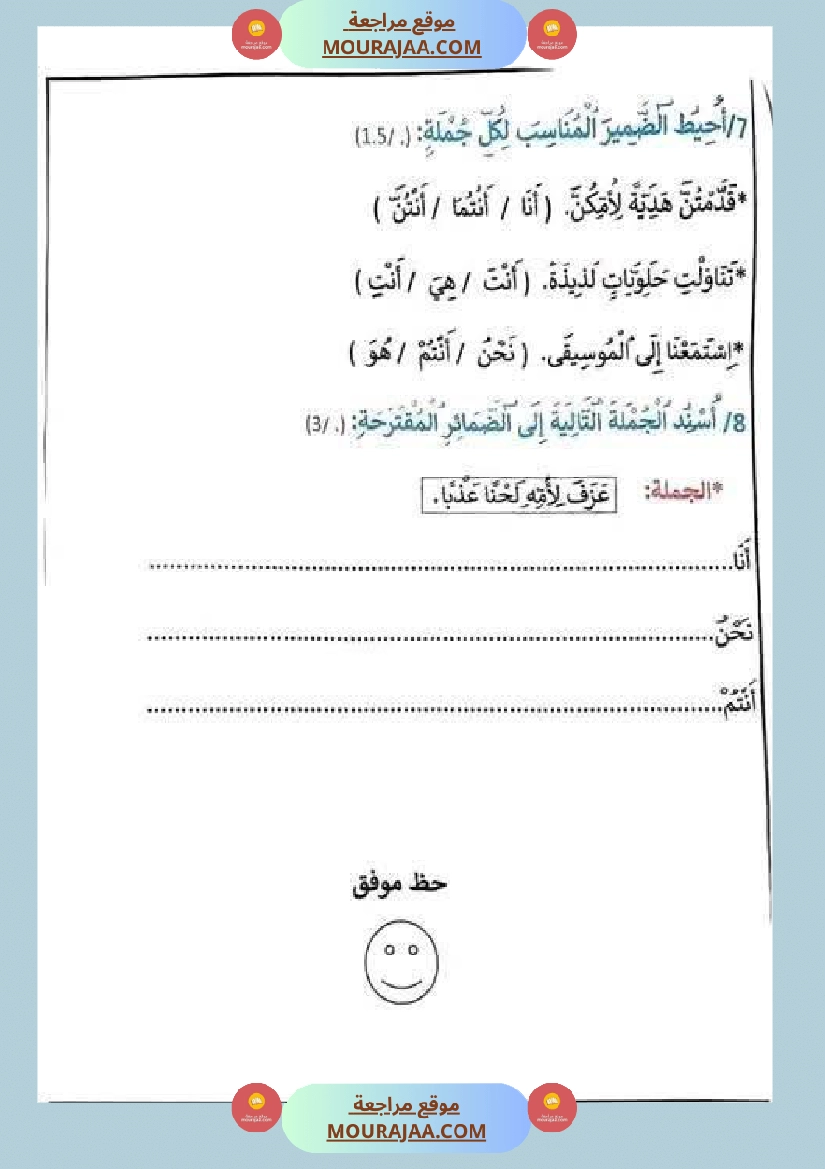 موقع مراجعة
MOURAJAA.COM
7/أُحِيطُ ٱلضَّمِيرَ ٱلْمُنَاسِبَ لِكُلِّ جُمْلَةٍ: (./1.5)
*قَدَّمْتُنَّ هَدِيَّةً لِأُمِّكُنَّ. ( أَنَا / أَنْتُمَا / أَنْتُنَّ )
*تَنَاوَلْتِ حَلَوِيَّاتٍ لَذِيذَةً. ( أَنْتَ / هِيَ / أَنْتِ )
*اِسْتَمَعْنَا إِلَى ٱلْمُوسِيقَى. ( نَحْنُ / أَنْتُمْ / هُوَ )
8/ أُسْنِدُ ٱلْجُمْلَةَ ٱلتَّالِيَةَ إِلَى ٱلضَّمَائِرِ ٱلْمُقْتَرَحَةِ: (./3)
*الجملة: عَزَفَ لِأُمِّهِ لَحْنًا عَذْبًا.
أَنَا................................................................
نَحْنُ................................................................
أَنْتُمْ................................................................
حظ موفق
موقع مراجعة
MOURAJAA.COM